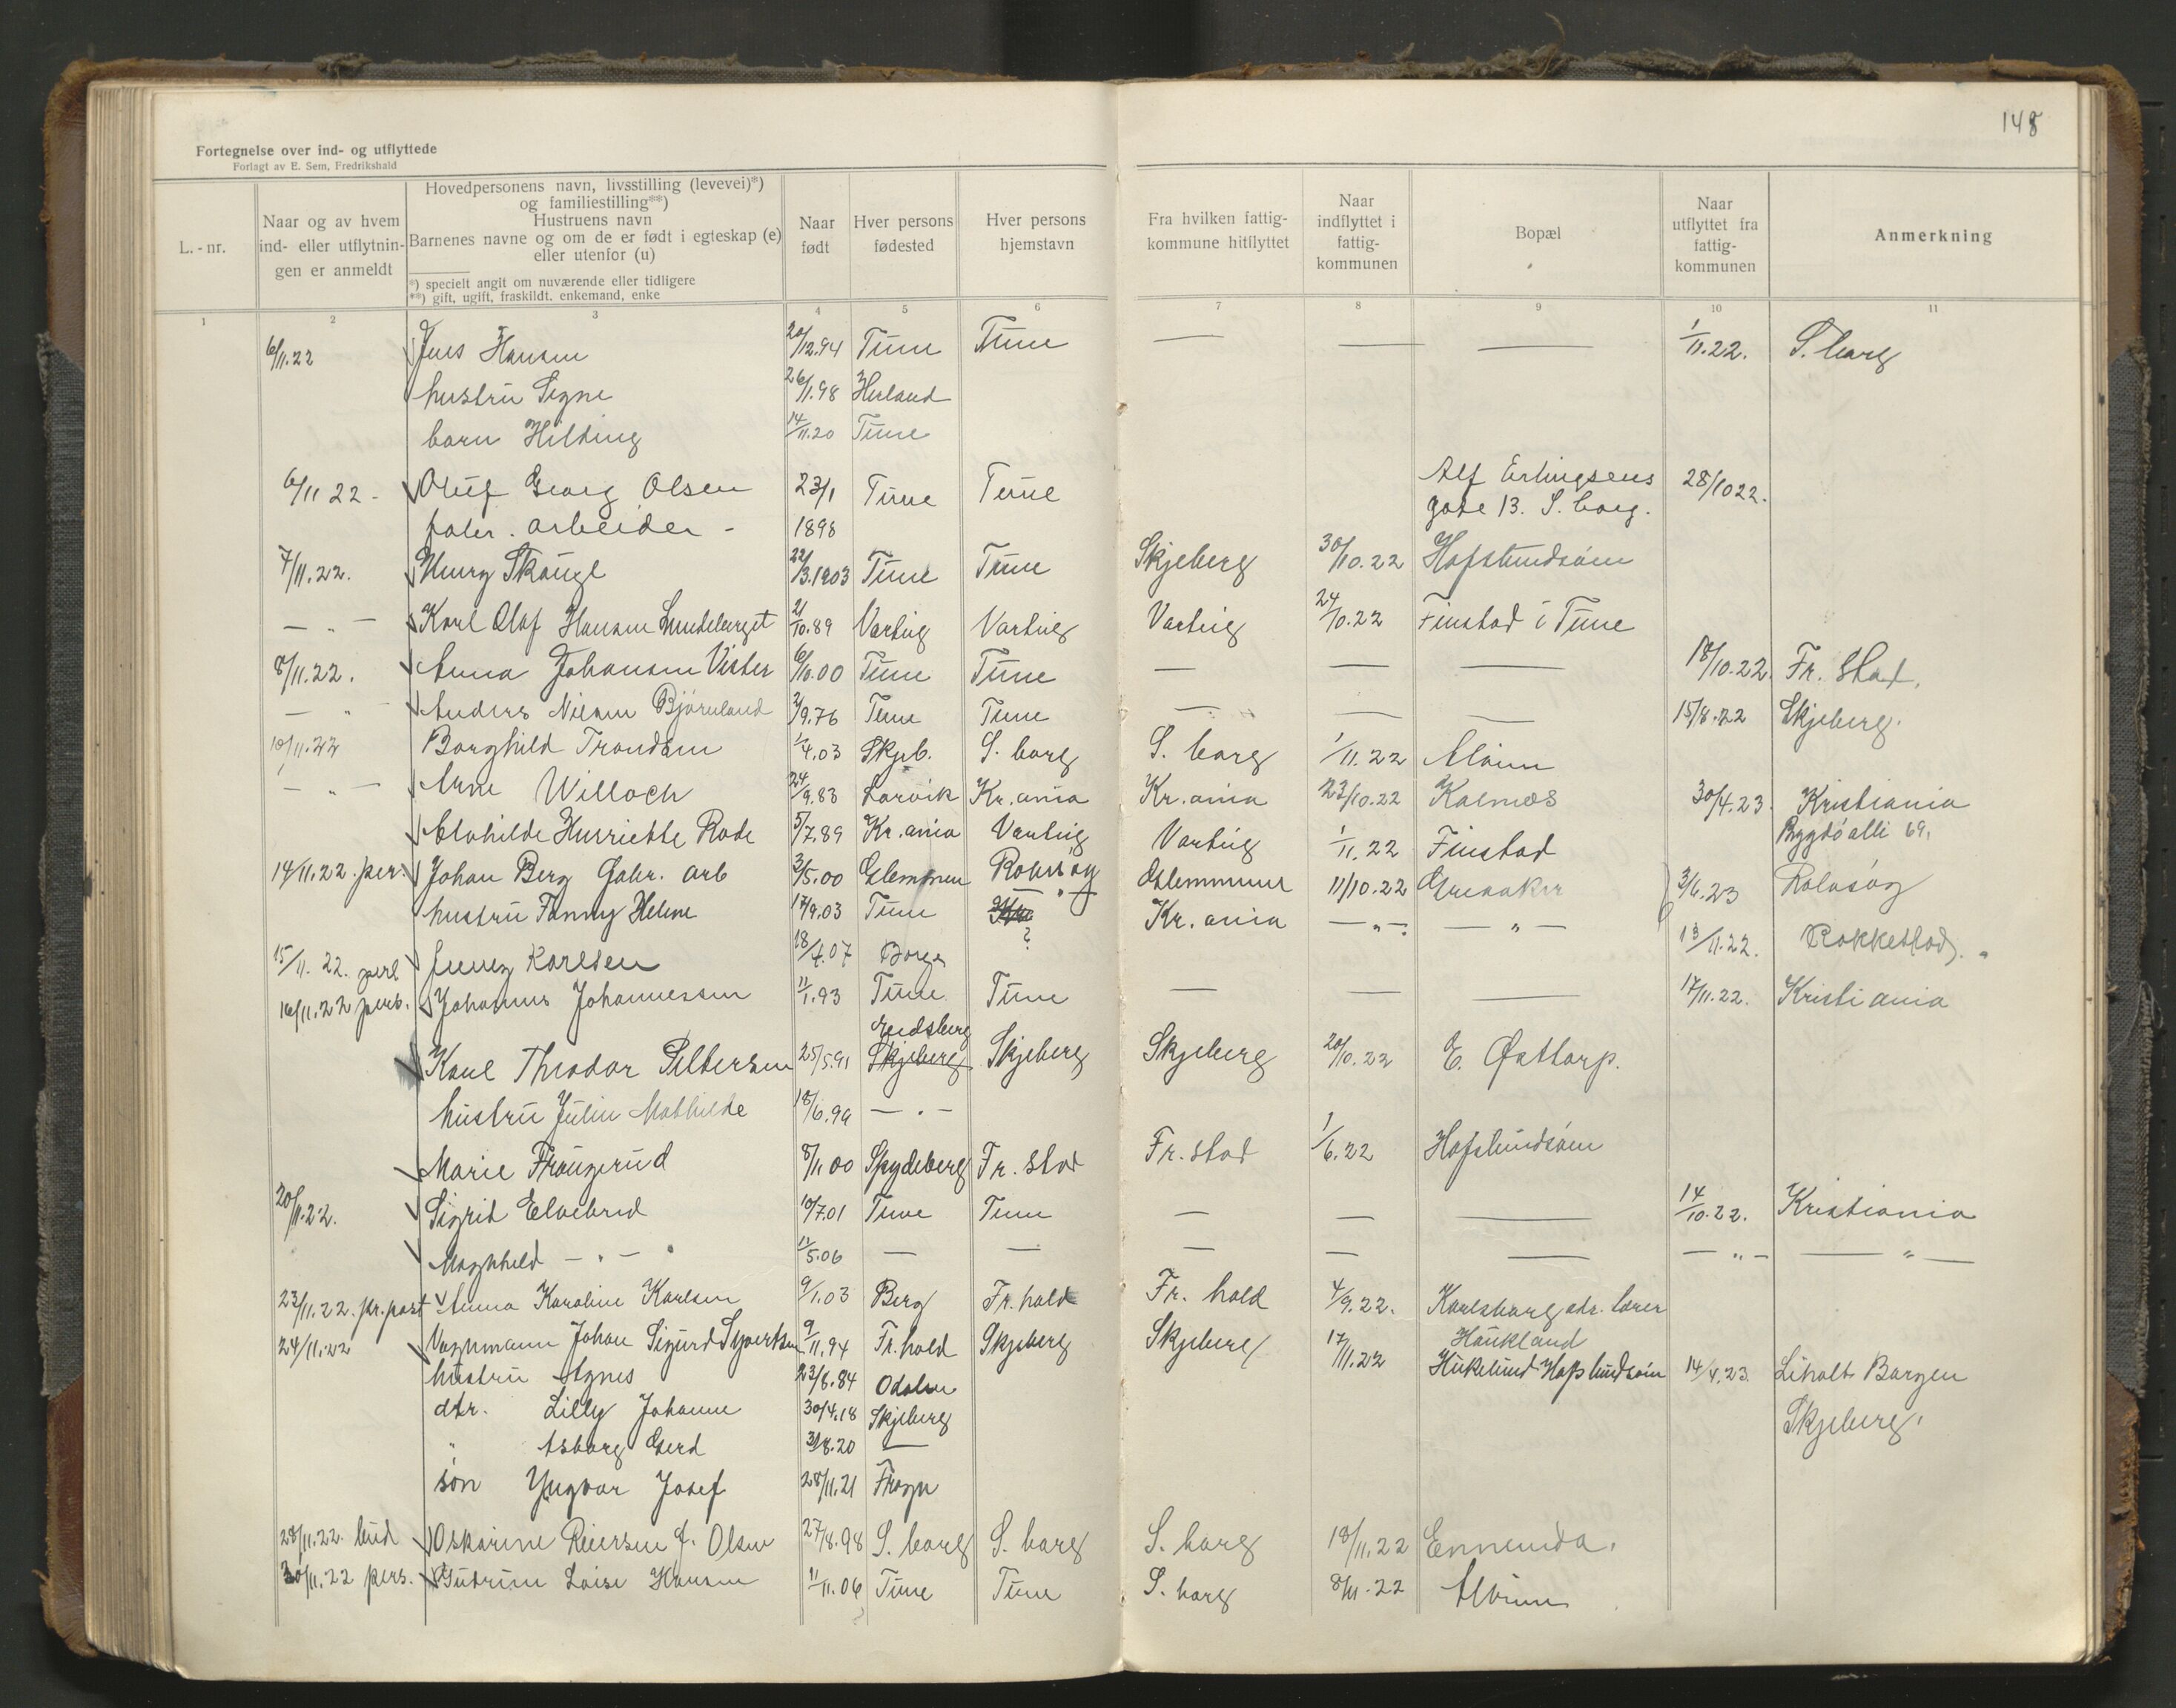 148
Fortegnelse over ind- og utflyttede
Forlagt av E. Sem, Fredrikshald
L.-nr.
Naar og av hvem ind- eller utflytningen er anmeldt
Hovedpersonens navn, livsstilling (levevei)*) og familiestilling**)
Hustruens navn
Barnenes navne og om de er født i egteskap (e) eller utenfor (u)
*) specielt angit om nuværende eller tidligere
**) gift, ugift, fraskildt. enkemand, enke
Naar født
Hver persons fødested
Hver persons hjemstavn
Fra hvilken fattigkommune hitflyttet
Naar indflyttet i fattigkommunen
Bopæl
Naar utflyttet fra fattigkommunen
Anmerkning
1 2 3 4 5 6 7 8 9 10 11
6/11.22 Jens Hansen 20/12.94 Tune Tune — — — 1/11.22. S.borg
hustru Signe 26/1.98 Herland
barn Hilding 14/11.20 Tune
6/11 22 - Oluf Georg Olsen 23/1 Tune Tune Alf Erlingsens 28/10 22.
fabr. arbeider - 1898 gate 13. S. borg.
7/11.22. Henry Skaugl 22/3.1903 Tune Tune Skjeberg 30/10.22 Hafslundsøen
— " — Karl Olaf Hansen 21/10.89 Varteig Varteig Varteig 24/10.22 Finstad i Tune
8/11.22. Anna Johansen Vister 6/10.00 Tune Tune — — — 18/10.22. Fr. stad.
— " — Anders Nilsen Bjørnland 2/9.76 Tune Tune — — — 15/8.22 Skjeberg.
10/11.22 Borghild Trondsen 1/4.03 Skjeb. S. borg S. borg 1/11.22 Alvim
— " — Arne Willoch 24/9.83 Larvik Kr.ania Kr.ania 23/10.22 Kalnæs 30/4.23. Kristiania
Bygdø alli 69.
Klohilde Henriette Rode 5/7.89 Kr.ania Varteig Varteig 1/11.22 Finstad
14/11.22. per. Johan Berg Fabr. arb 3/5.00 Glemmen Rolvsøy Glemmen 11/10.22 Greaaker 3/6.23 Rolvsøy
hustru Fanny Helene 17/9.03 Tune — " — Kr.ania — " — — " —
15/11.22. Jenny Karlsen 18/4.07 Borge ? 13/11.22. Rokkestad.
16/11.22 pers. Johannes Johannessen 11/1.93 Tune Tune — — — 17/11.22. Kristiania
Eidsberg
Karl Theodor Pettersen 25/5.91 Skjeberg Skjeberg Skjeberg 20/10.22 E. Østtorp.
hustru Julie Mathilde 18/6.99 — " —
Marie Frougerud 8/11 00 Spydeberg Fr. stad Fr. stad 1/6.22 Hafslundsøen
20/11.22. Sigrid Elvebred 10/7.01 Tune Tune — — — 14/10.22. Kristiania
Magnhild — " — 11/5.06 — — — — — — " — — " —
23/11.22. pr. post Anna Karoline Karlsen 9/1.03 Berg Fr.hald Fr. hald 4/9.22. Karlsborg adr. lærer
Haukland
24/11.22 Vognmann Johan Sigurd Syvertsen 9/11.94 Fr.hald Skjeberg Skjeberg 17/11.22 Hukelund Hafslundsøen 14/4.23. Liholt Borgen
hustru Agnes 23/8.84 Odalen
dtr. Lilly Johanne 30/4.18 Skjeberg Skjeberg.
" Asborg Gerd 3/8.20 —
søn Yngvar Josef 28/11.21 Frogn
28/11.22. bud Oskarine Reiersen f. Olsen 27/8.98 S. borg S. borg S. borg 18/11.22 Ennenda.
30/11.22 pers. Gudrun Loise Hansen 11/11.06 Tune Tune S. borg 8/11.22 Alvim